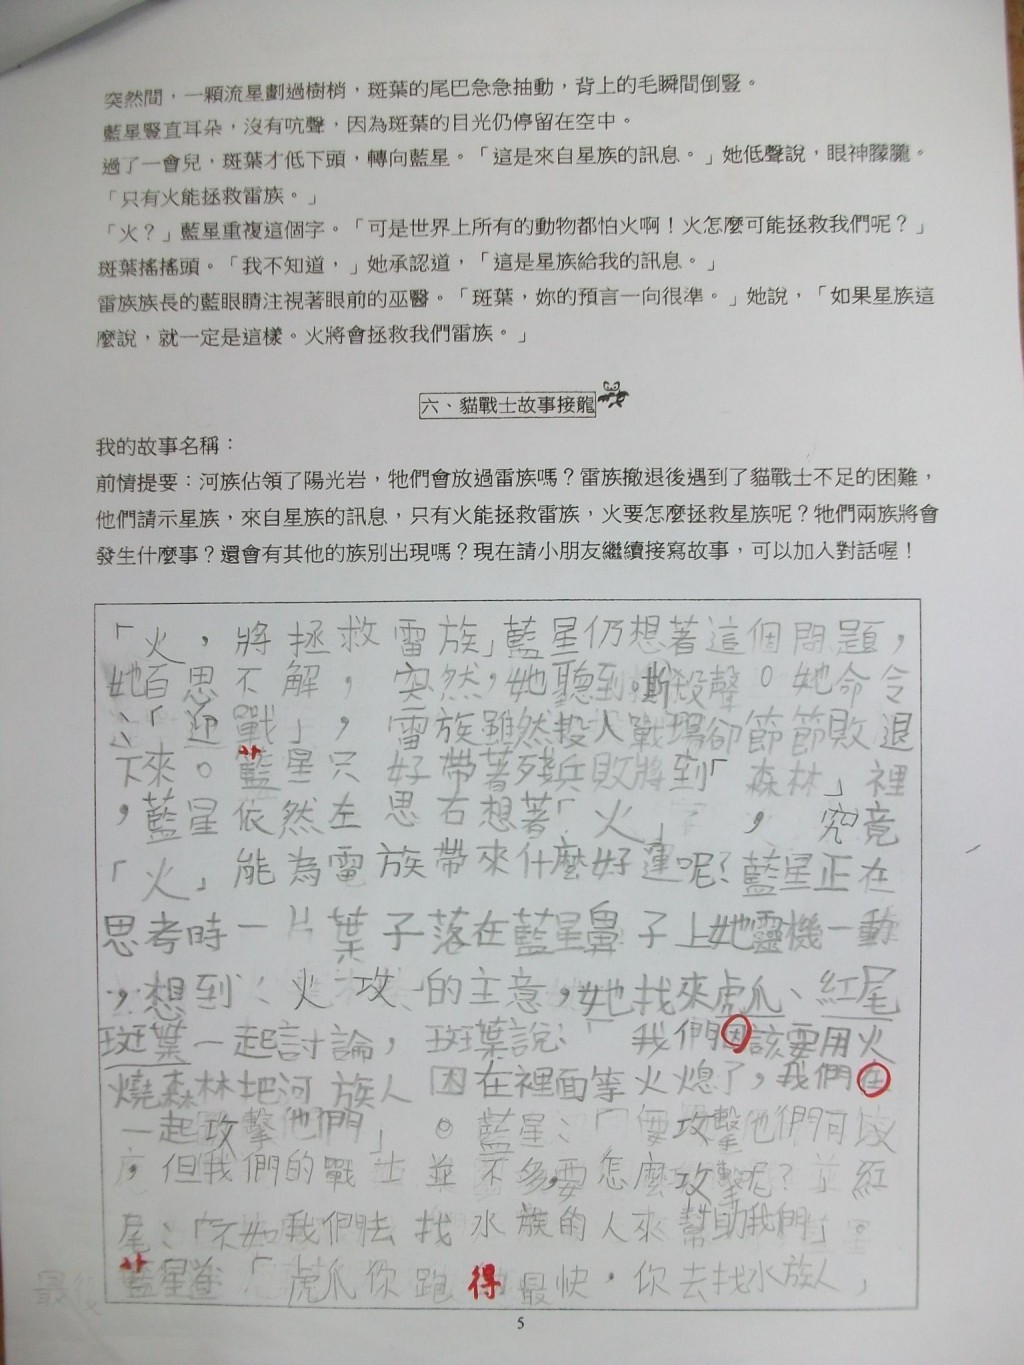 突然間，一顆流星劃過樹梢，斑葉的尾巴急急抽動，背上的毛瞬間倒豎。
藍星豎直耳朵，沒有吭聲，因為斑葉的目光仍停留在空中。
過了一會兒，斑葉才低下頭，轉向藍星。「這是來自星族的訊息。」她低聲說，眼神朦朧。
「只有火能拯救雷族。」
「火？」藍星重複這個字。「可是世界上所有的動物都怕火啊！火怎麼可能拯救我們呢？」
斑葉搖搖頭。「我不知道，」她承認道，「這是星族給我的訊息。」
雷族族長的藍眼睛注視著眼前的巫醫。「斑葉，妳的預言一向很準。」她說，「如果星族這
麼說，就一定是這樣。火將會拯救我們雷族。」
六、貓戰士故事接龍
我的故事名稱：
前情提要：河族佔領了陽光岩，牠們會放過雷族嗎？雷族撤退後遇到了貓戰士不足的困難，
他們請示星族，來自星族的訊息，只有火能拯救雷族，火要怎麼拯救星族呢？牠們兩族將會
發生什麼事？還會有其他的族別出現嗎？現在請小朋友繼續接寫故事，可以加入對話喔！
「火，將拯救雷族」藍星仍想著這個問題，
她百思不解，突然，她聽到嘶殺聲。她命令
：「迎戰」，雷族雖然投入戰場卻節節敗退
下來。藍星只好帶著殘兵敗將到「森林」裡
，藍星依然左思右想著「火」，究竟
「火」能為雷族帶來什麼好運呢？藍星正在
思考時一片葉子落在藍星鼻子上她靈機一動
，想到：火攻的主意，她找來虎爪、紅尾
斑葉一起討論，斑葉說：「我們因該要用火
燒森林把河族人困在裡面等火熄了，我們在
一起攻擊他們」。藍星：「要攻擊他們可以
，但我們的戰士並不多，要怎麼攻擊呢？紅
尾：「不如我們去找水族的人來幫助我們」
藍星道「虎爪你跑得最快，你去找水族人，
最後
5